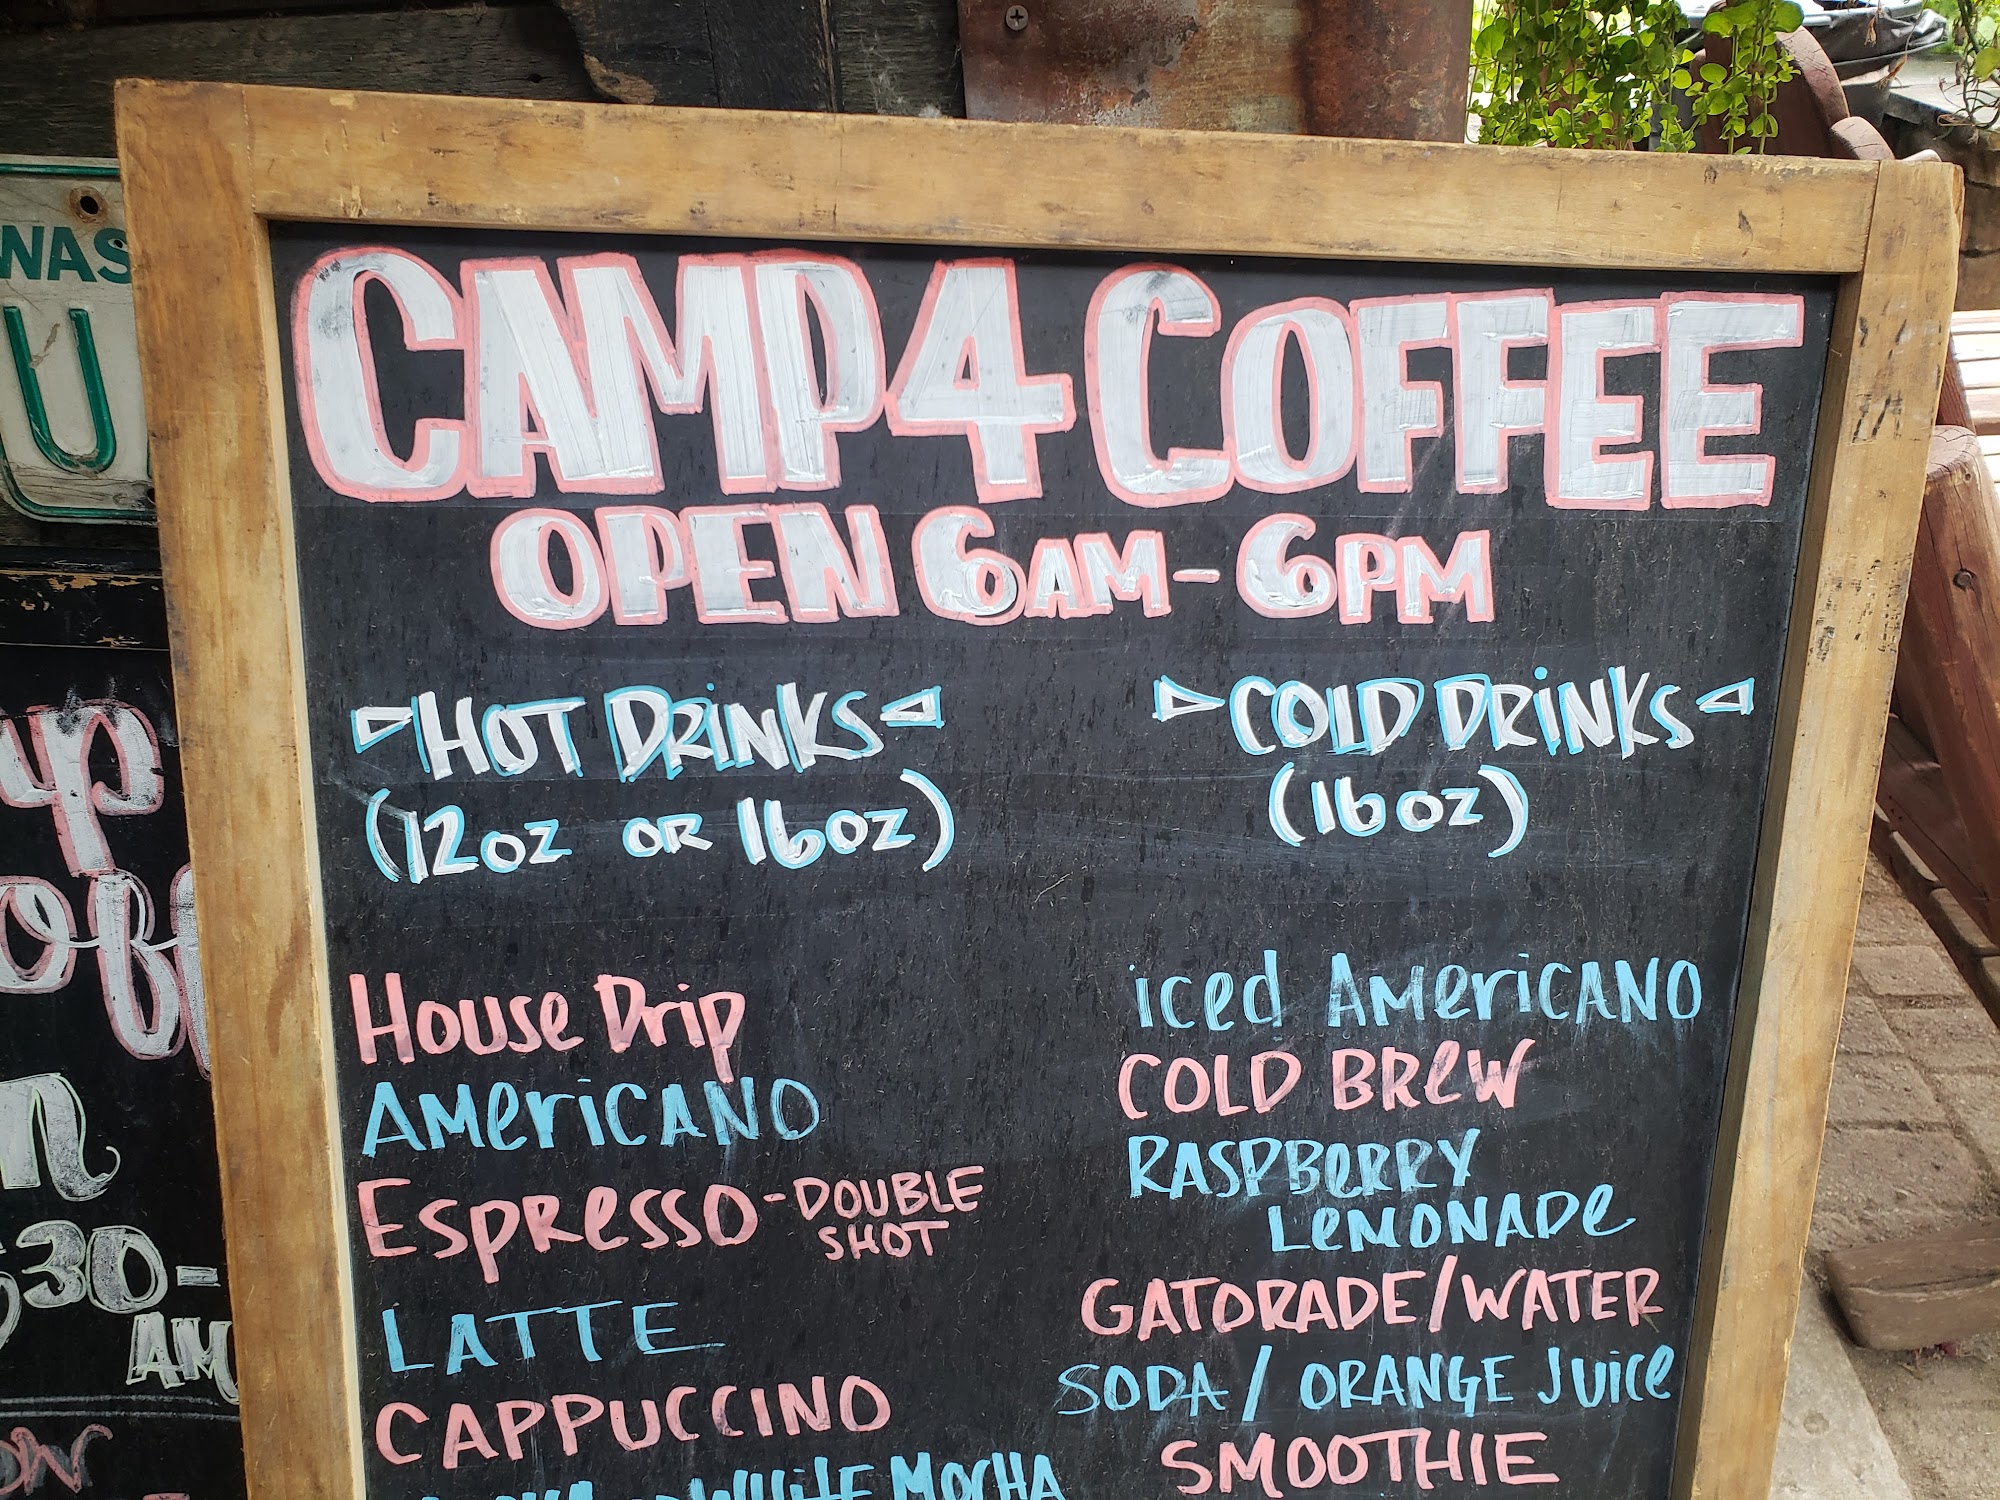 CAMP 4 COFFEE
OPEN 6AM - 6PM
HOT DRINKS
(12oz OR 16oz)
House Drip
AMericANO
Espresso - DOUBLE
SHOT
LATTE
CAPPUCCINO
White MOCHA
COLD DRINKS
(16oz)
iced AMericANO
COLD BReW
RASPBeRRY
LeMONADe
GATORADE/WATER
SODA / ORANGE JUice
SMOOTHIE
WAS
U
up
off
n
630-
AM